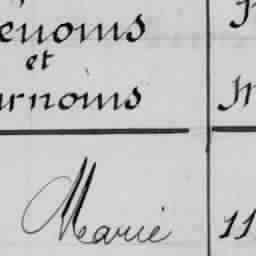 enoms
et
rnoms
Marie 11